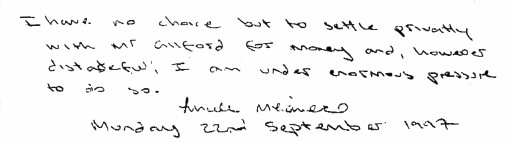 I have no choice but to settle privatly
with Mr Gilford for money and, however
distasteful, I am under enormous pressure
to do so.
Monday 22nd September 1997